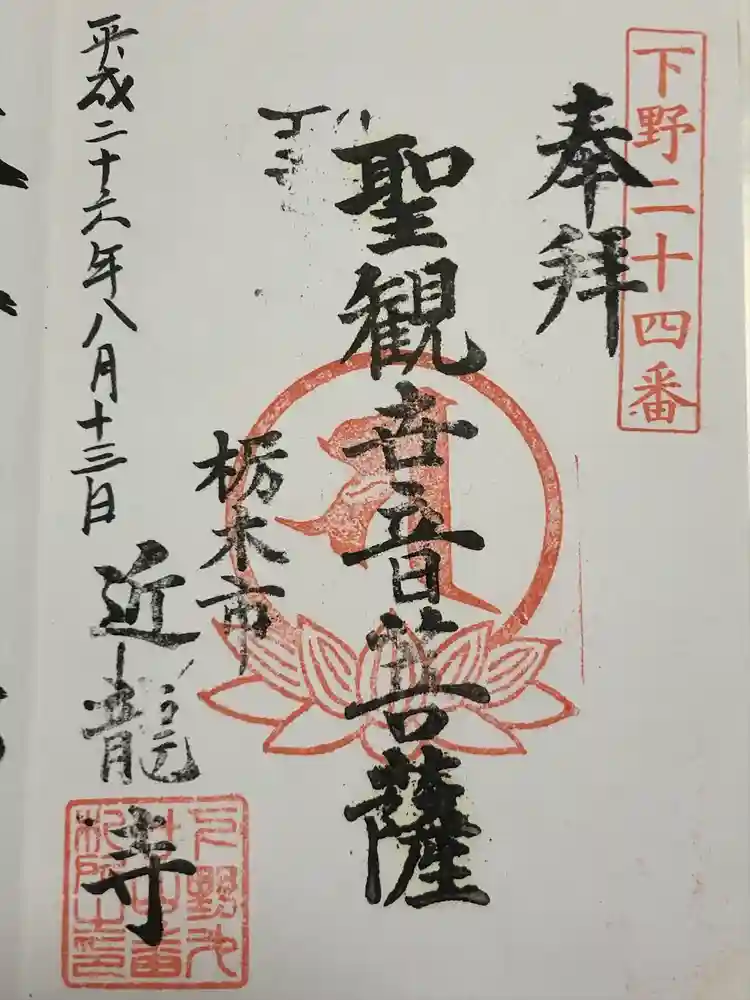 下野二十四番
奉拝
聖観世音菩薩
栃木市
近龍寺
平成二十六年八月十三日